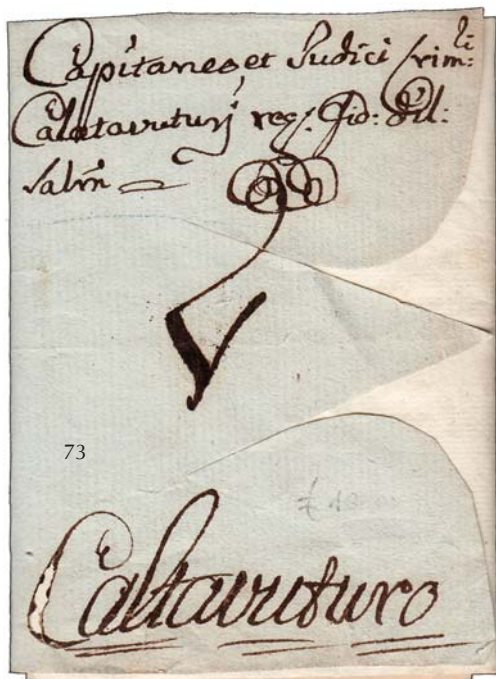 Capitaneo et Iudici Crim:li
Calatavuturij reg: Fid: Dil:
salm
73
Caltavuturo